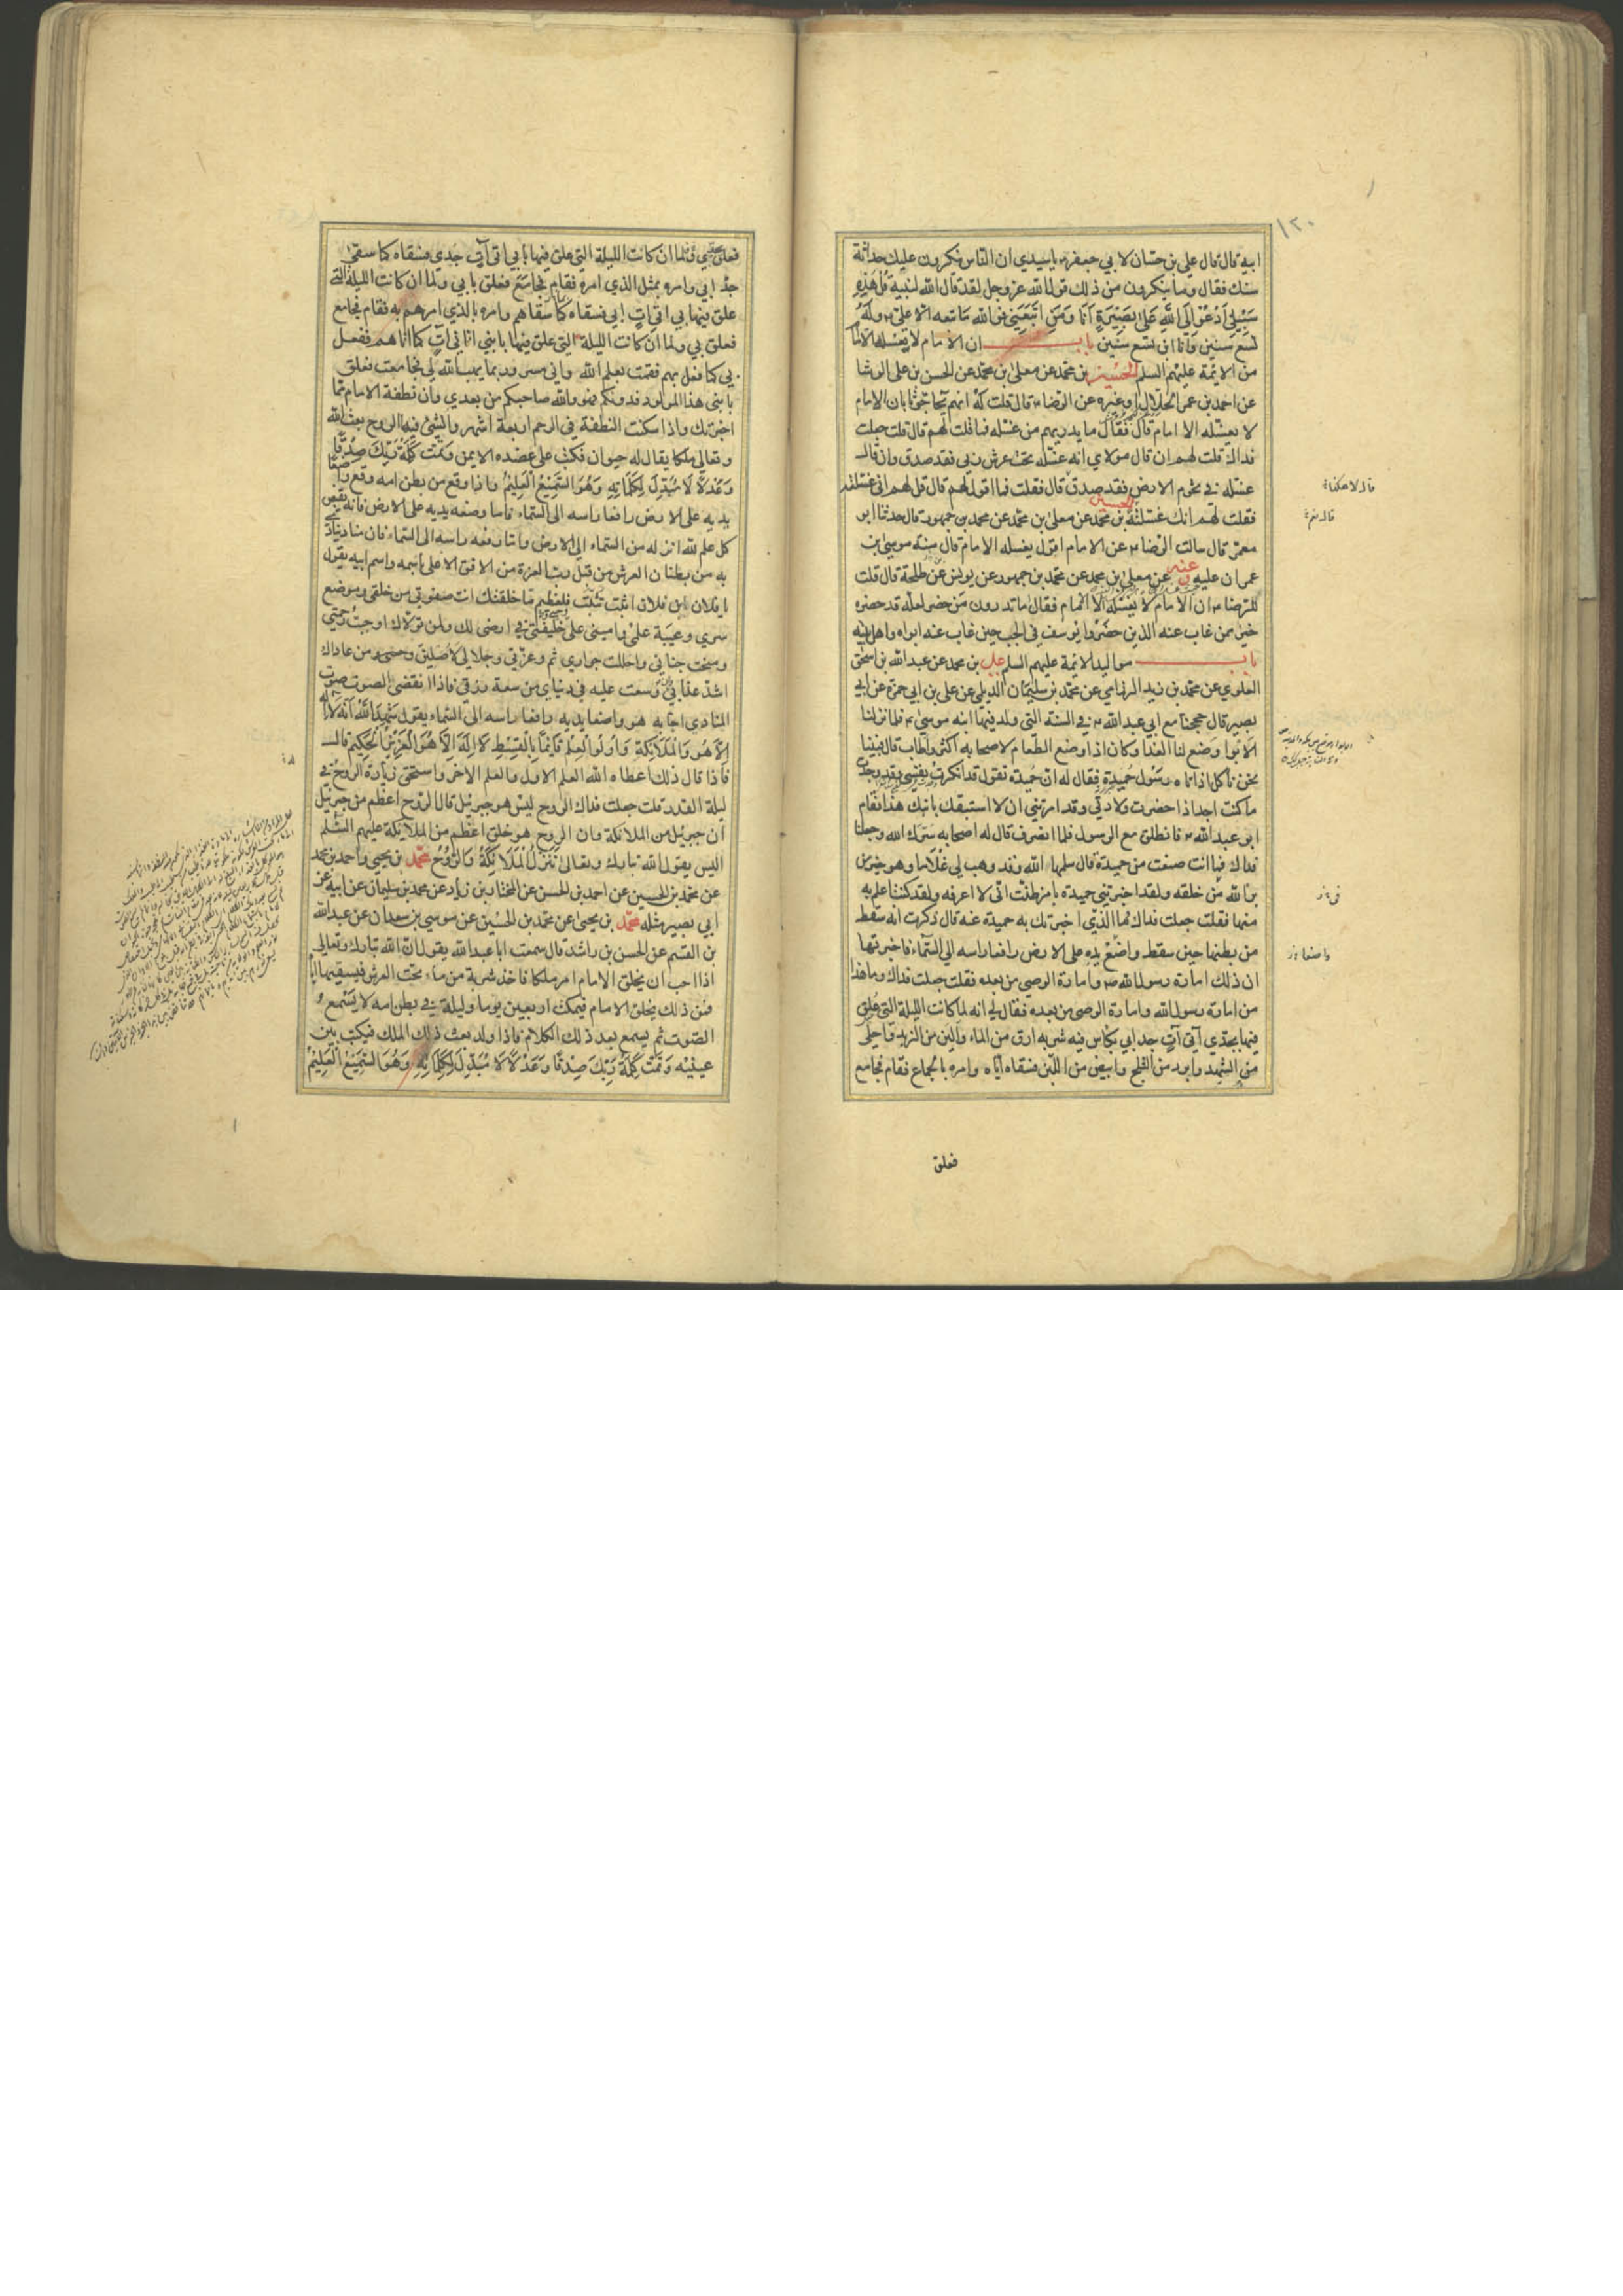 ١٢٠
ابيه قال قال علي بن حسان لابي جعفر ع يا سيدي ان الناس ينكرون عليك حداثة
سنك فقال وما ينكرون من ذلك قول الله عز وجل لقد قال الله لنبيه قُلْ هٰذِهِ
سَبيلي اَدْعُوْا اِلَى اللهِ عَلى بَصِيْرَةٍ اَنَا وَمَنِ اتَّبَعَنِي فو الله ما تبعه الا علي ع وله
تسع سنين وانا ابن تسع سنين باب ان الامام لا يغسله الا امام
من الائمة عليهم السلم الحسين بن محمد عن معلى بن محمد عن الحسن بن علي الوشا
عن احمد بن عمر الحلال او غيره عن الرضا ع قال قلت له انهم يحاجونا يقولون ان الامام
لا يغسله الا امام قال فقال ما يدريهم من غسله فما قلت لهم قال قلت جعلت
فداك قلت لهم ان قال مولاي انه غسله تحت عرش ربي فقد صدق وان قال
غسله في تخوم الارض فقد صدق قال فقلت فما اقول لهم قال قل لهم اني غسلته
فقلت لهم انك غسلته الحسين بن محمد عن معلى بن محمد عن محمد بن جمهور قال حدثنا ابو
معمر قال سالت الرضا ع عن الامام يغسله الامام قال سنة موسى بن
عمران عليه وعنه عن معلى بن محمد عن محمد بن جمهور عن يونس عن طلحة قال قلت
للرضا ع ان الامام لا يغسله الا الامام فقال ما تدرون من حضر لعله قد حضره
خير ممن غاب عنه الذين حضروا يوسف في الجب حين غاب عنه ابواه واهل بيته
باب مواليد الائمة عليهم السلم علي بن محمد عن عبد الله بن اسحق
العلوي عن محمد بن زيد الرزامي عن محمد بن سليمان الديلمي عن علي بن ابي حمزة عن ابي
بصير قال حججنا مع ابي عبد الله ع في السنة التي ولد فيها ابنه موسى ع فلما نزلنا
الابوا وضع لنا الغدا وكان اذا وضع الطعام لاصحابه اكثر واطاب قال فبينا
نحن ناكل اذ اتاه رسول حميدة فقال له ان حميدة تقول قد انكرت نفسي وقد وجدت
ما كنت اجد اذا حضرت ولادتي وقد امرتني ان لا استبقك بابنك هذا فقام
ابو عبد الله ع فانطلق مع الرسول فلما انصرف قال له اصحابه سرك الله وجعلنا
فداك فما انت صنعت من حميدة قال سلمها الله وقد وهب لي غلاما وهو خير من
برا الله من خلقه ولقد اخبرتني حميدة بامر ظنت اني لا اعرفه ولقد كنت اعلم به
منها فقلت جعلت فداك فما الذي اخبرتك به حميدة عنه قال ذكرت انه سقط
من بطنها حين سقط واضع يده على الارض رافعا راسه الى السماء فاخبرتها
ان ذلك امارة رسول الله ص وامارة الوصي من بعده فقلت جعلت فداك وما هذا
من امارة رسول الله وامارة الوصي من بعده فقال لي انه لما كانت الليلة التي عُلق
فيها بجدي اتى آتٍ جد ابي بكاس فيه شربه ارق من الماء والين من الزبد واحلى
من الشهد وابرد من الثلج وابيض من اللبن فسقاه اياه وامره بالجماع فقام فجامع
فعلق
قال لا هكذا
قال نعم
واضعا
فعلق بجدي ولما ان كانت الليلة التي علق فيها بابي اتى آتٍ جدي فسقاه كما سقى
جد ابي وامره بمثل الذي امره فقام فجامع فعلق بابي ولما ان كانت الليلة التي
علق فيها بي اتى آتٍ ابي فسقاه كما سقاهم وامره بالذي امرهم به فقام فجامع
فعلق بي ولما ان كانت الليلة التي علق فيها بابني اتاني آتٍ كما اتاهم ففعل
بي كما فعل بهم فقمت بعلم الله واني مسرور بما يهب الله لي فجامعت فعلق
بابني هذا المولود فدونكم فهو والله صاحبكم من بعدي وان نطفة الامام مما
اخبرتك واذا سكنت النطفة في الرحم اربعة اشهر وانشئ فيها الروح بعث الله
وتعالى ملكا يقال له حيوان فكتب على عضده الايمن وَتَمَّتْ كَلِمَةُ رَبِّكَ صِدْقًا
وَعَدْلًا لَا مُبَدِّلَ لِكَلِمَاتِهِ وَهُوَ السَّمِيْعُ الْعَلِيْمُ واذا وقع من بطن امه وقع واضعا
يديه على الارض رافعا راسه الى السماء فاما وضعه يديه على الارض فانه يقبض
كل علم لله انزله من السماء الى الارض واما رفعه راسه الى السماء فان مناديا ينادي
به من بطنان العرش من قبل رب العزة من الافق الاعلى باسمه واسم ابيه يقول
يا فلان ابن فلان اثبت تثبت فلعظيم ما خلقتك انت صفوتي من خلقي وموضع
سري وعيبة علمي واميني على وحيي وخليفتي في ارضي لك ولمن تولاك اوجبت رحمتي
ومنحت جناني واحللت جواري ثم وعزتي وجلالي لاصلين من عاداك
اشد عذابي وان وسعت عليه في دنياي من سعة رزقي فاذا انقضى الصوت صوت
المنادي اجابه هو واضعا يديه رافعا راسه الى السماء يقول شَهِدَ اللهُ اَنَّهُ لَا اِلٰهَ
اِلَّا هُوَ وَالْمَلَائِكَةُ وَاُولُوا الْعِلْمِ قَائِمًا بِالْقِسْطِ لَا اِلٰهَ اِلَّا هُوَ الْعَزِيْزُ الْحَكِيْمُ قال
فاذا قال ذلك اعطاه الله العلم الاول والعلم الاخر واستحق زيارة الروح في
ليلة القدر قلت جعلت فداك الروح ليس هو جبرئيل قال الروح اعظم من جبرئيل
ان جبرئيل من الملائكة وان الروح هو خلق اعظم من الملائكة عليهم السلم
اليس يقول الله تبارك وتعالى تَنَزَّلُ الْمَلَائِكَةُ وَالرُّوْحُ محمد بن يحيى واحمد بن محمد
عن محمد بن الحسين عن احمد بن الحسن عن المختار بن زياد عن محمد بن سليمان عن ابيه عن
ابي بصير مثله محمد بن يحيى عن محمد بن الحسين عن موسى بن سعدان عن عبد الله
بن القسم عن الحسن بن راشد قال سمعت ابا عبد الله يقول ان الله تبارك وتعالى
اذا احب ان يخلق الامام امر ملكا فاخذ شربة من ماء تحت العرش فيسقيها اباه
فمن ذلك يخلق الامام فيمكث اربعين يوما وليلة في بطن امه لا يسمع
الصوت ثم يسمع بعد ذلك الكلام فاذا ولد بعث ذلك الملك فيكتب بين
عينيه وَتَمَّتْ كَلِمَةُ رَبِّكَ صِدْقًا وَعَدْلًا لَا مُبَدِّلَ لِكَلِمَاتِهِ وَهُوَ السَّمِيْعُ الْعَلِيْمُ